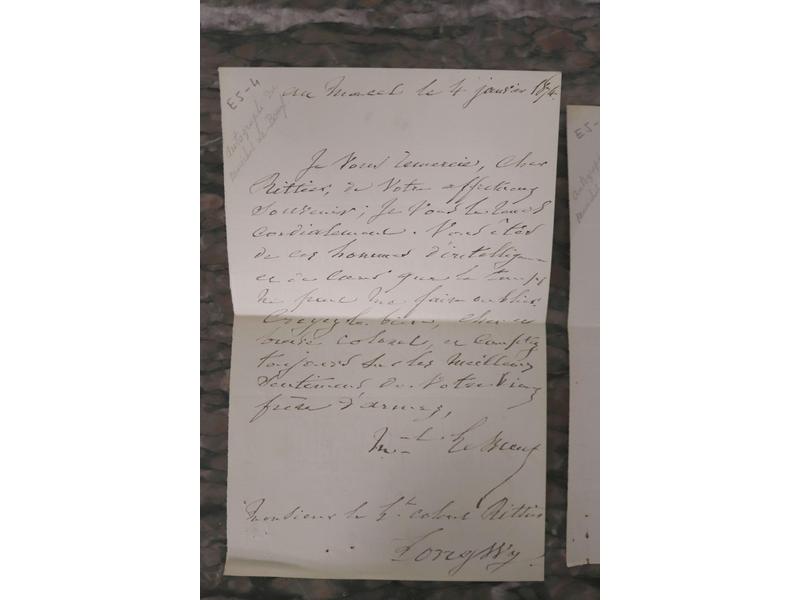 E5-4
autographe du
maréchal Le Boeuf
au Moncel le 4 janvier 1874.
Je vous remercie, cher
Rittier, de votre affectueux
souvenir ; je vous le rends
cordialement. Vous êtes
de ces hommes d'intelligence
et de coeur que le temps
ne peut me faire oublier.
Croyez le bien, cher et
colonel, et comptez
toujours sur les meilleurs
sentimens de votre vieux
frère d'armes,
Mal Le Boeuf
Monsieur le Lt colonel Rittier
Longwy
E5-
autographe